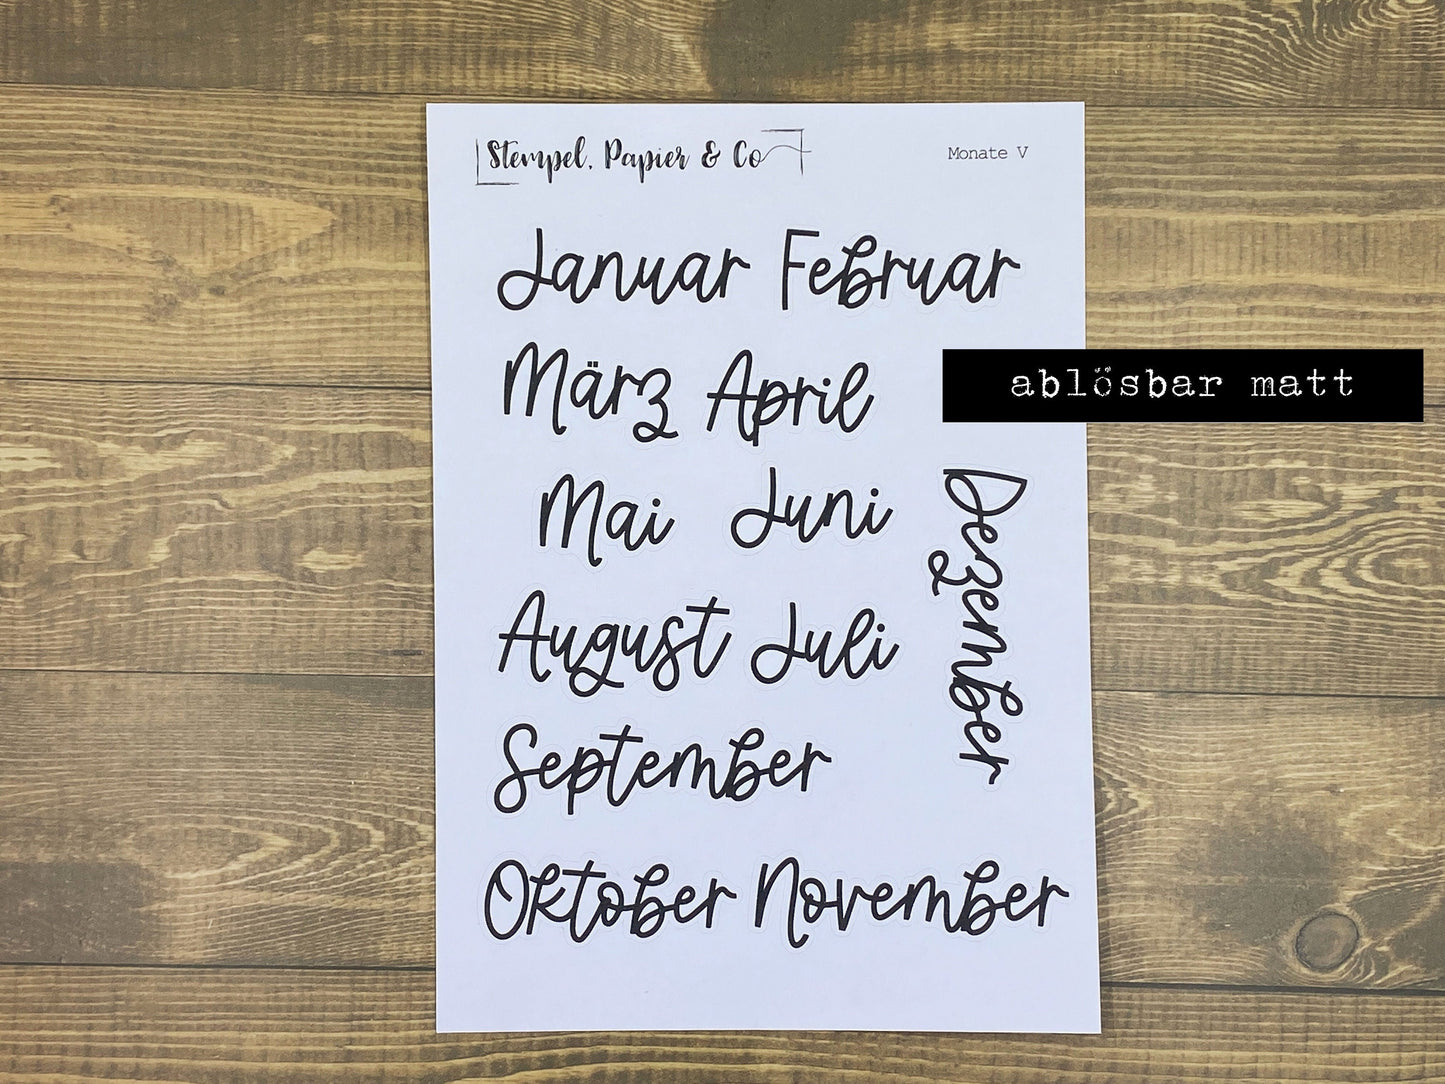 Stempel, Papier & Co
Monate V
Januar Februar
März April
ablösbar matt
Mai Juni
Dezember
August Juli
September
Oktober November